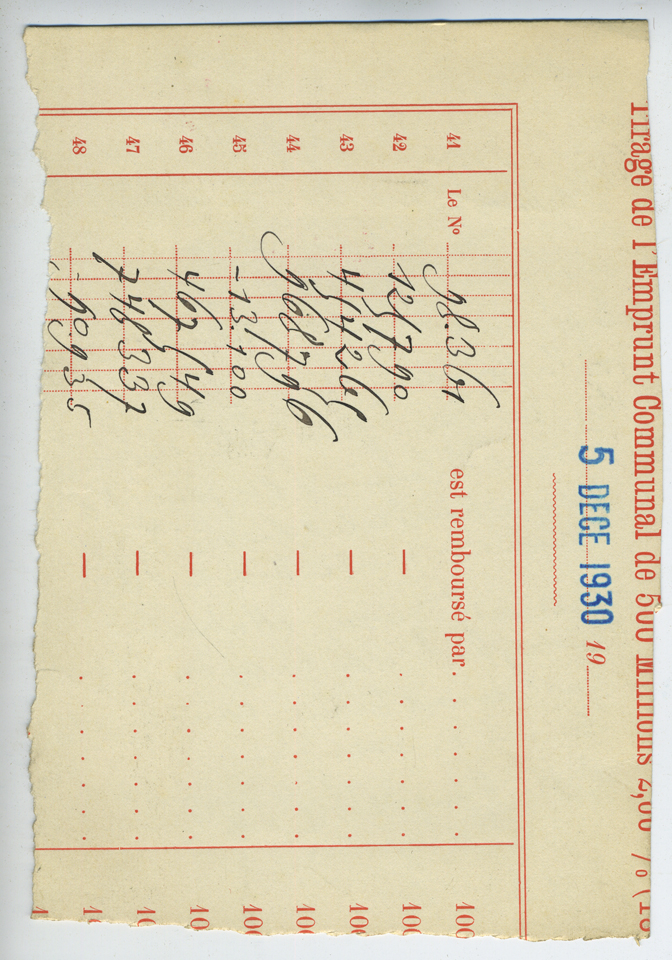 Tirage de l'Emprunt Communal de 500 Millions 2,60 % (18
5 DECE 1930 19
41 Le Nº 98.361 est remboursé par. . . . . . . 100
42 125790 — . . . . . . . 100
43 454265 — . . . . . . . 100
44 968796 — . . . . . . . 100
45 -13.100 — . . . . . . . 100
46 462549 — . . . . . . . 10
47 748337 — . . . . . . . 10
48 -90.935 — . . . . . . . 10